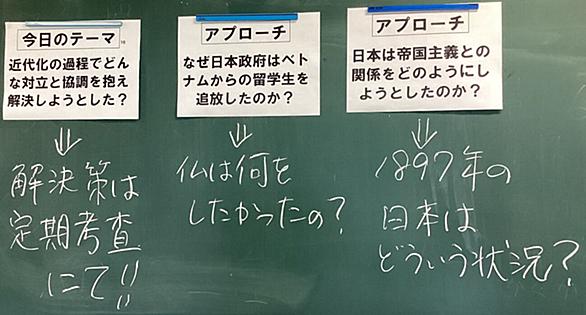 今日のテーマ
近代化の過程でどん
な対立と協調を抱え
解決しようとした？
アプローチ
なぜ日本政府はベト
ナムからの留学生を
追放したのか？
アプローチ
日本は帝国主義との
関係をどのようにし
ようとしたのか？
解決策は
定期考査
にて!!
仏は何を
したかったの？
1897年の
日本は
どういう状況？